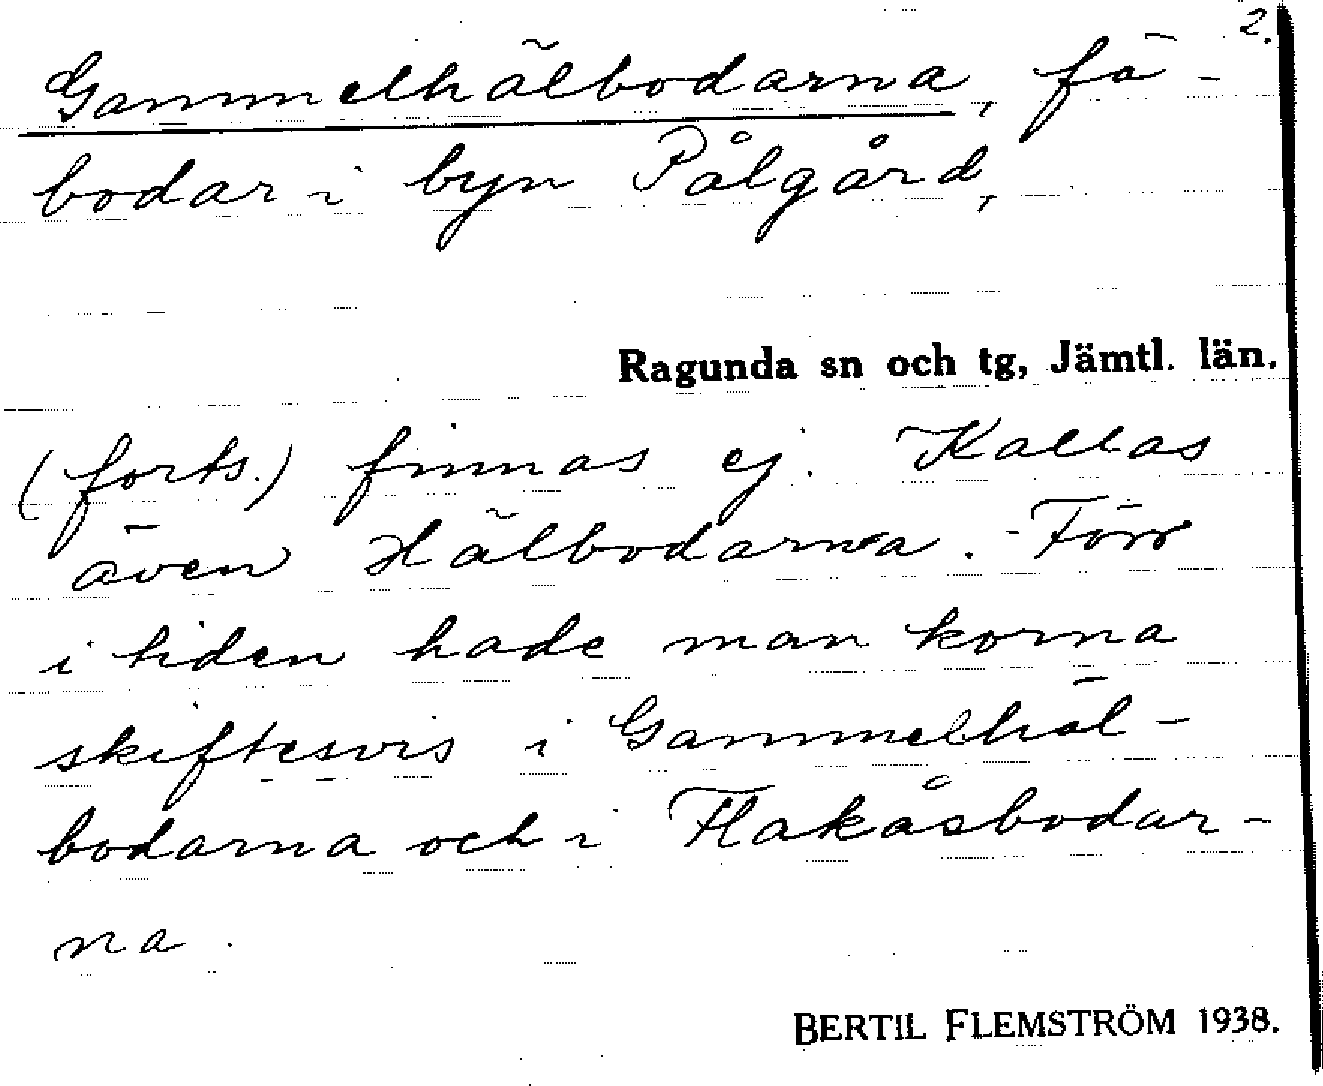 2.
Gammelhälbodarna, fä-
bodar i byn Pålgård,
Ragunda sn och tg, Jämtl. län.
(forts.) finnas ej. Kallas
även Hälbodarna. Förr
i tiden hade man korna
skiftesvis i Gammelhäl-
bodarna och i Flakåsbodar-
na.
BERTIL FLEMSTRÖM 1938.